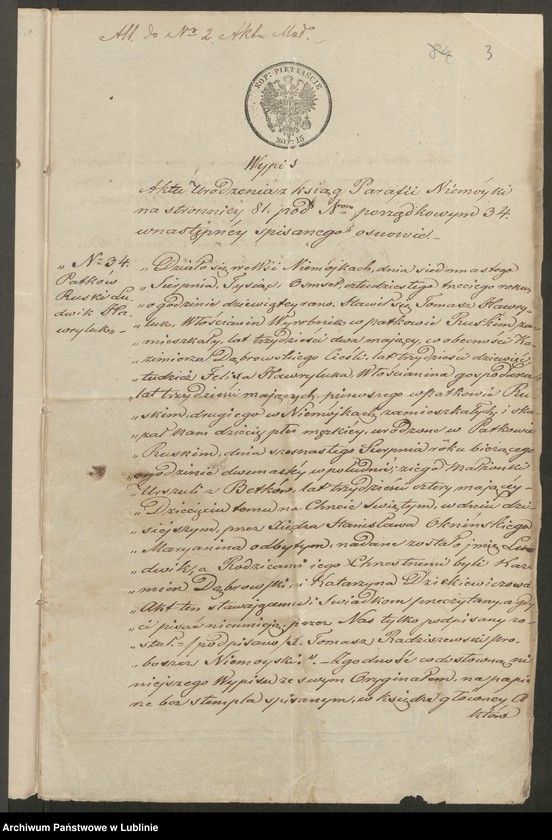 All. do N<sup>o</sup> 2. Aktu Mał.
84 3
KOP: PIETNAŚCIE
KOP: 15
Wypis
Aktu Urodzenia z ksiąg Parafii Niemoyki
na stronnicy 81. pod N<sup>rem</sup> porządkowym 34.
wnastępney spisanego osnowie.-
„ N<sup>o</sup> 34.
Patkow
Ruski Lu-
dwik Ha-
wryluk„-
„ Działo się we Wsi Niemóykach, dnia siedmnastego
„ Sierpnia, Tysiąc, Ośmset, trzeciego roku,
„ o godzinie dziewiątey rano. Stawił się Tomasz Hawry-
„ luk, Włościanin Wyrobnik w Patkowie Ruskim zam-
„ mieszkały, lat trzydzieści dwa maiący, w obecności Ka-
„ zimierza Dąbrowskiego Cieśli, lat trzydzieści dziewięć
„ tudzież Felixa Hawryluka, Włościanina gospodarza
„ lat trzydzieści maiących, pierwszego w Patkowie Ru-
„ skim, drugiego w Niemóykach, zamieszkałych i oka-
„ zał Nam dziecię płci męzkiéy, urodzone w Patkowie
„ Ruskim, dnia szesnastego Sierpnia roku bieżącego
„ o godzinie dwunastéy w południe; z iego Małżonki
„ Urszuli z Betków, lat trzydzieści cztery maiącey.-
„ Dziecięciu temu na Chrcie Świętym, w dniu dzi-
„ sieyszym, przez Xiędza Stanisława Oknińskiego
„ Maryanina odbytym, nadane zostało imię Lu-
„ dwik, a Rodzicami iego Chrzestnemi byli Kazi-
„ mierz Dąbrowski i Katarzyna Dziekiewiczowa
„ Akt ten stawaiącemu i Świadkom przeczytany, a gdy
„ ci pisać nieumieią, przez Nas tylko podpisany zo-
„ stał.- /podpisano/ X. Tomasz Radziszewski Pro-
„ boszcz Niemoyski.".- Zgodność co dosłowna ni-
nieyszego Wypisu ze swym Oryginałem, na papie-
rze bez stempla spisanym, w księdze głównéy A
któw
Archiwum Państwowe w Lublinie